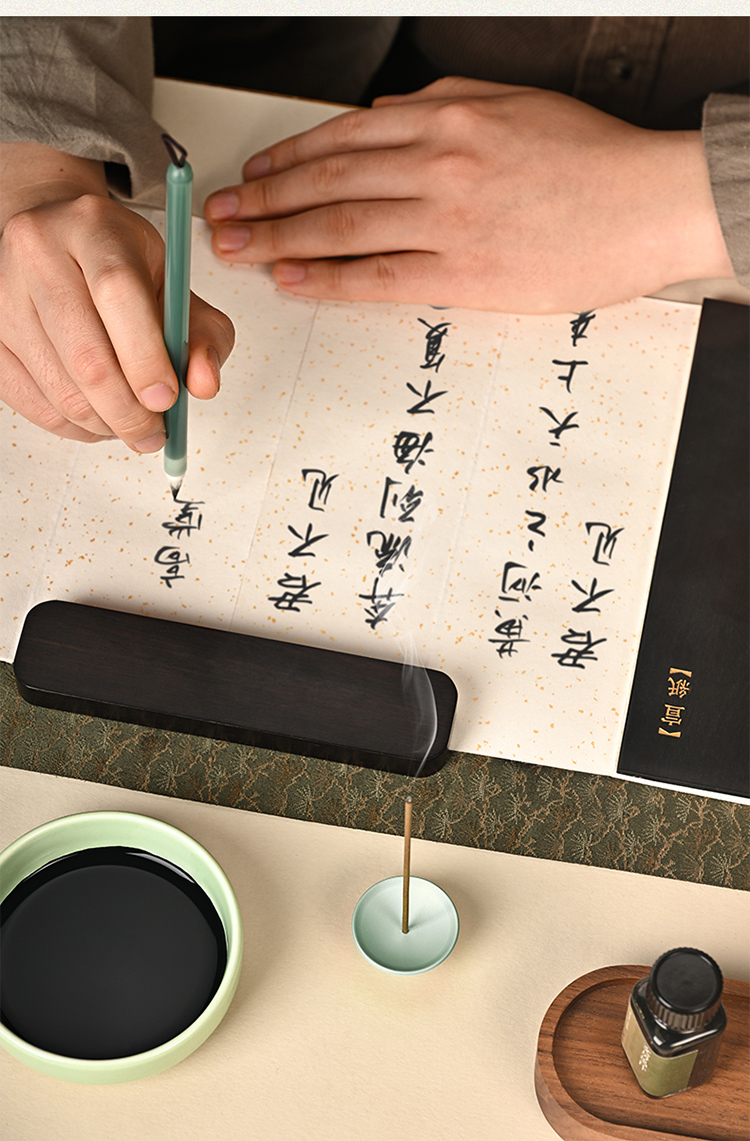 【宣紙】
君不见
黄河之水天上
奔流到海不复
君不见
高堂